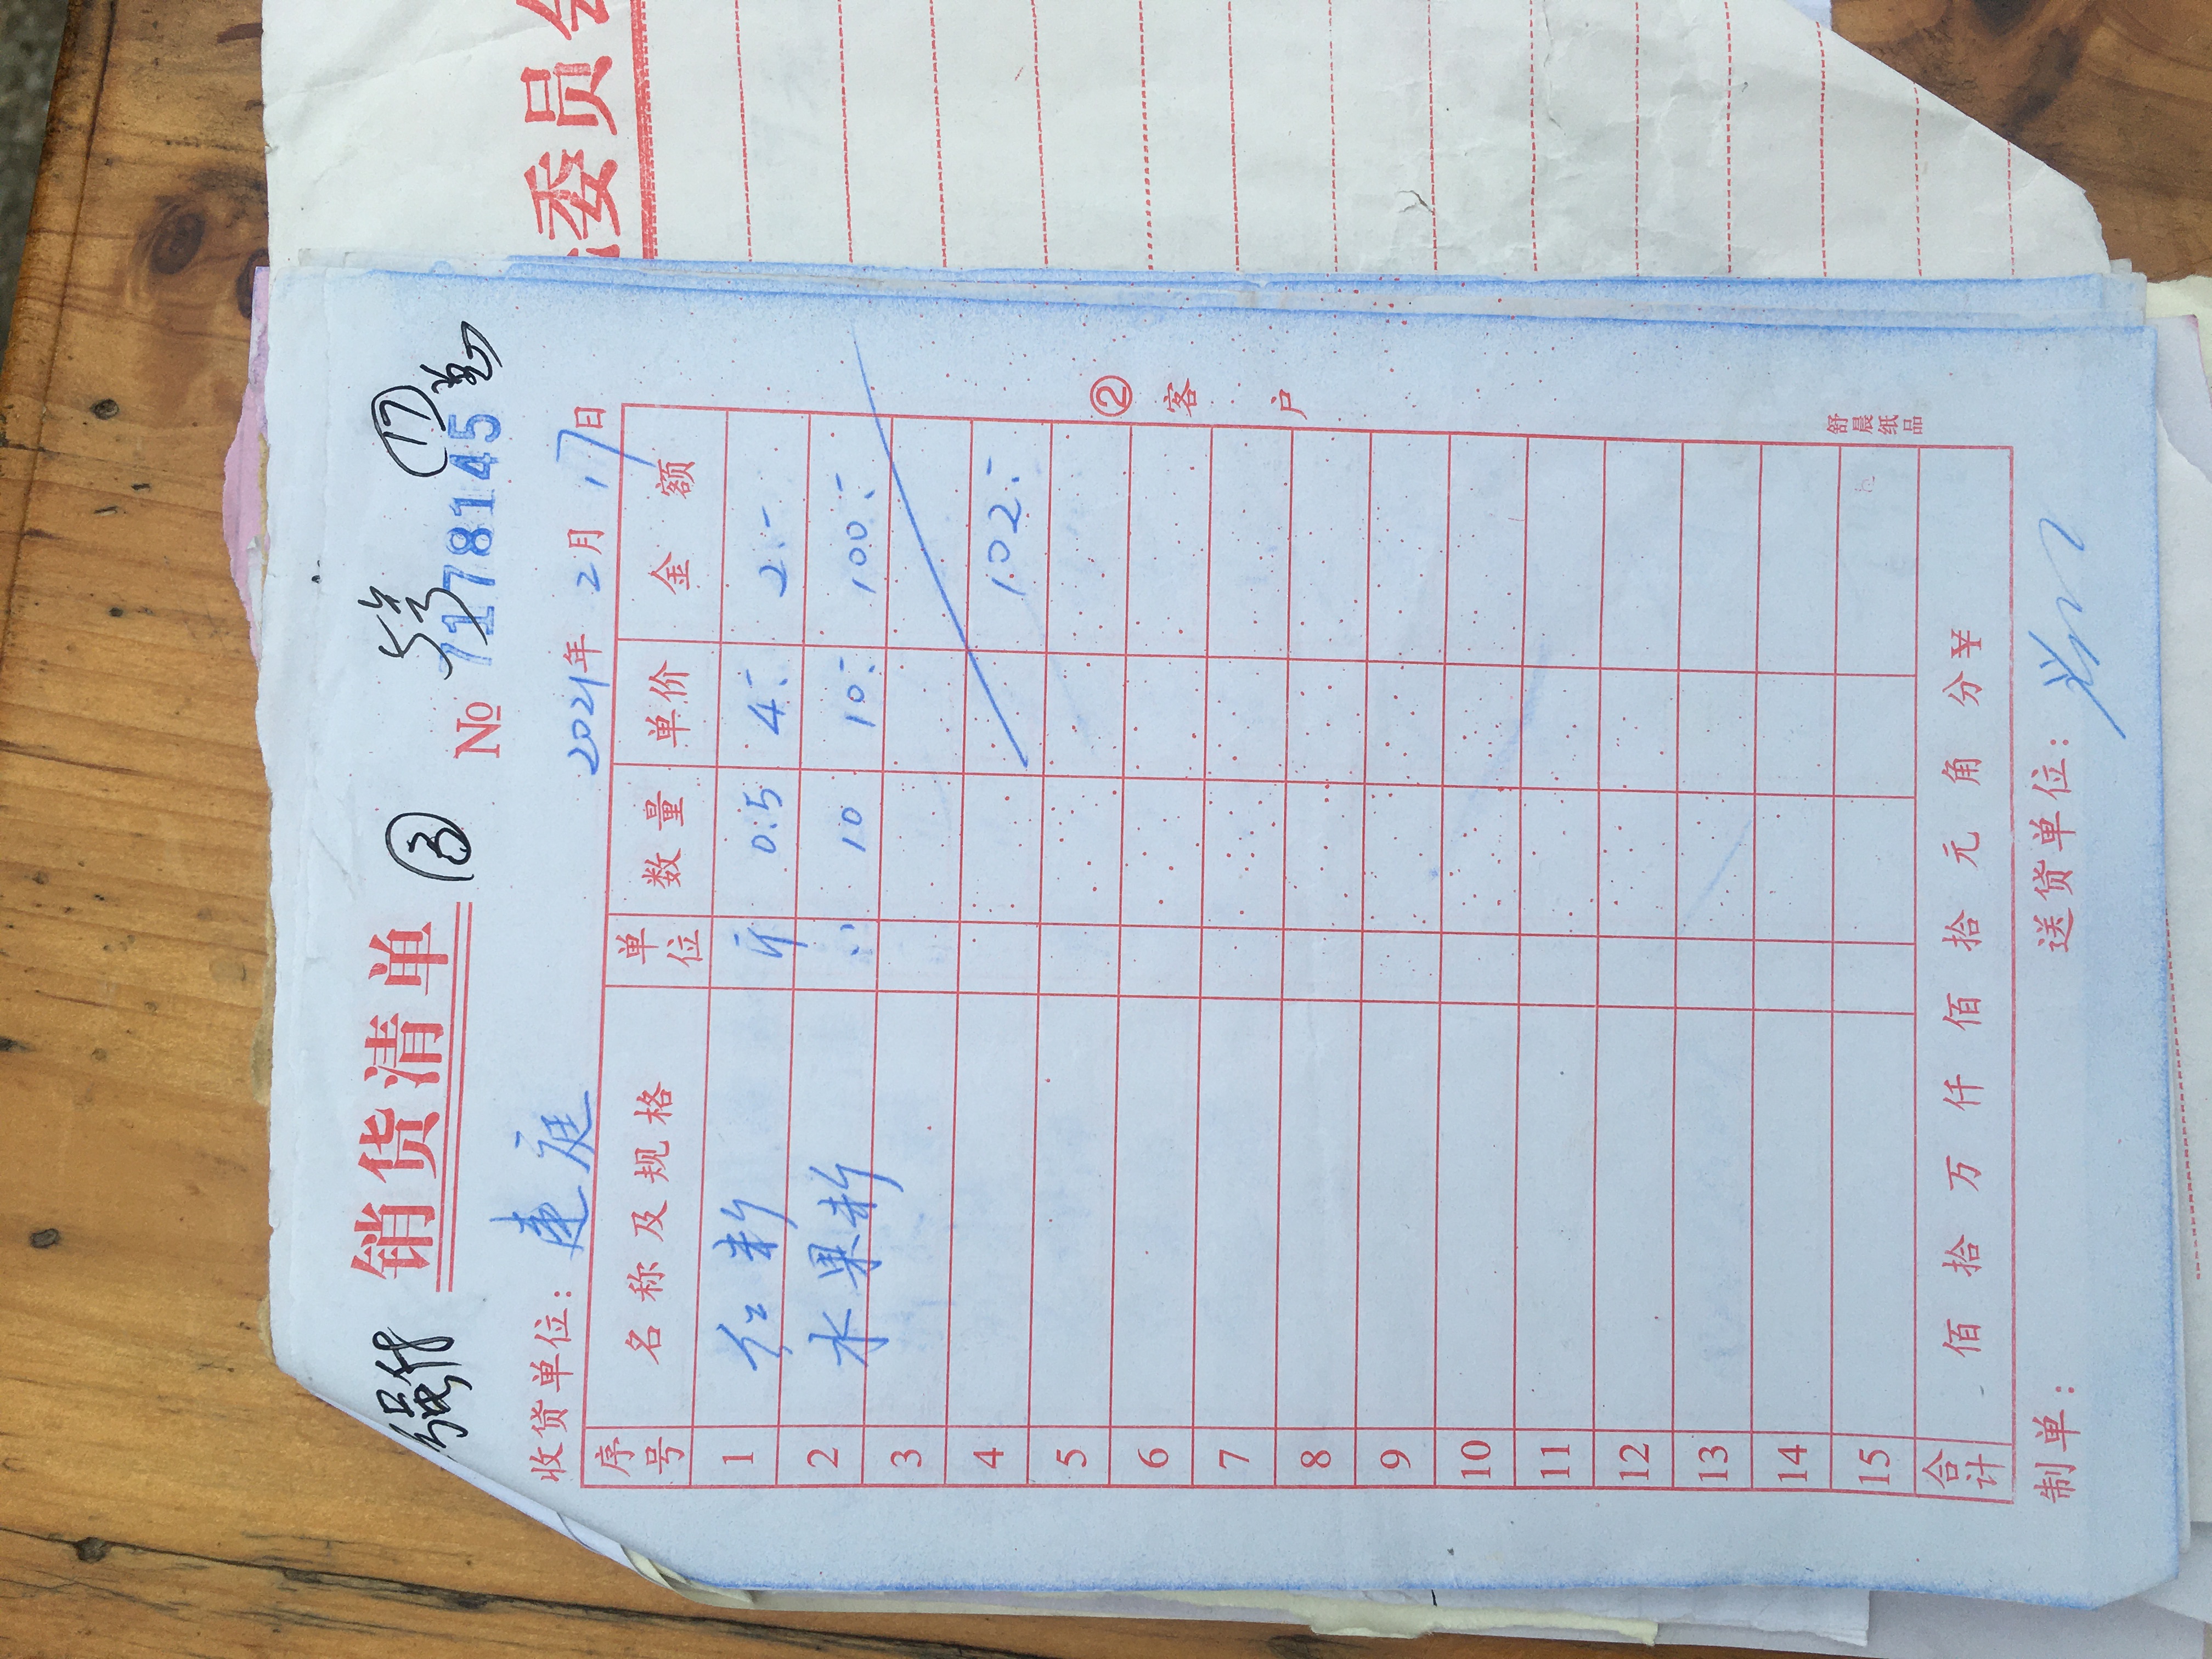 强付 销货清单 5号 17
No 7178145
收货单位: 建庭 2021年 2月 17日
序号 名称及规格 单位 数量 单价 金额
1 红 斤 0.5 4.- 2.-
2 水果 〃 10 10.- 100.-
3
4 102.-
5
6
7
8
9
10
11
12
13
14
15
合计 佰 拾 万 仟 佰 拾 元 角 分 ¥
制单: 送货单位:
②客户
舒晨纸品
委员会